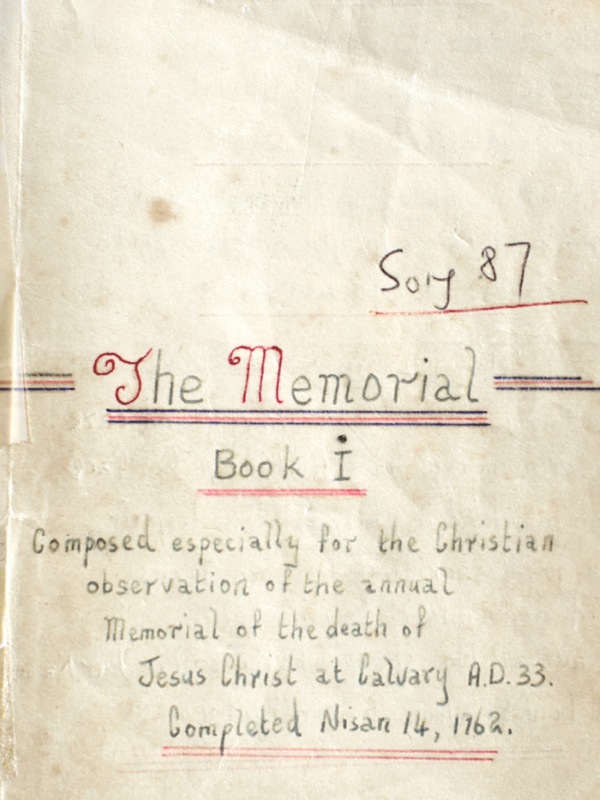 Song 87
The Memorial
Book I
Composed especially for the Christian
observation of the annual
Memorial of the death of
Jesus Christ at Calvary A.D. 33.
Completed Nisan 14, 1962.